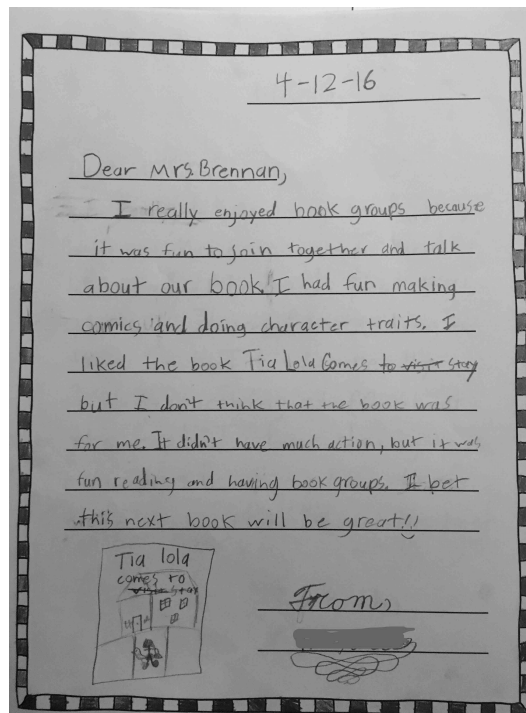 4-12-16
Dear Mrs. Brennan,
I really enjoyed book groups because
it was fun to join together and talk
about our book. I had fun making
comics and doing character traits. I
liked the book Tia Lola Comes to visit stay
but I don't think that the book was
for me. It didn't have much action, but it was
fun reading and having book groups. I bet
this next book will be great!!
Tia lola
comes to
visit stay
From,